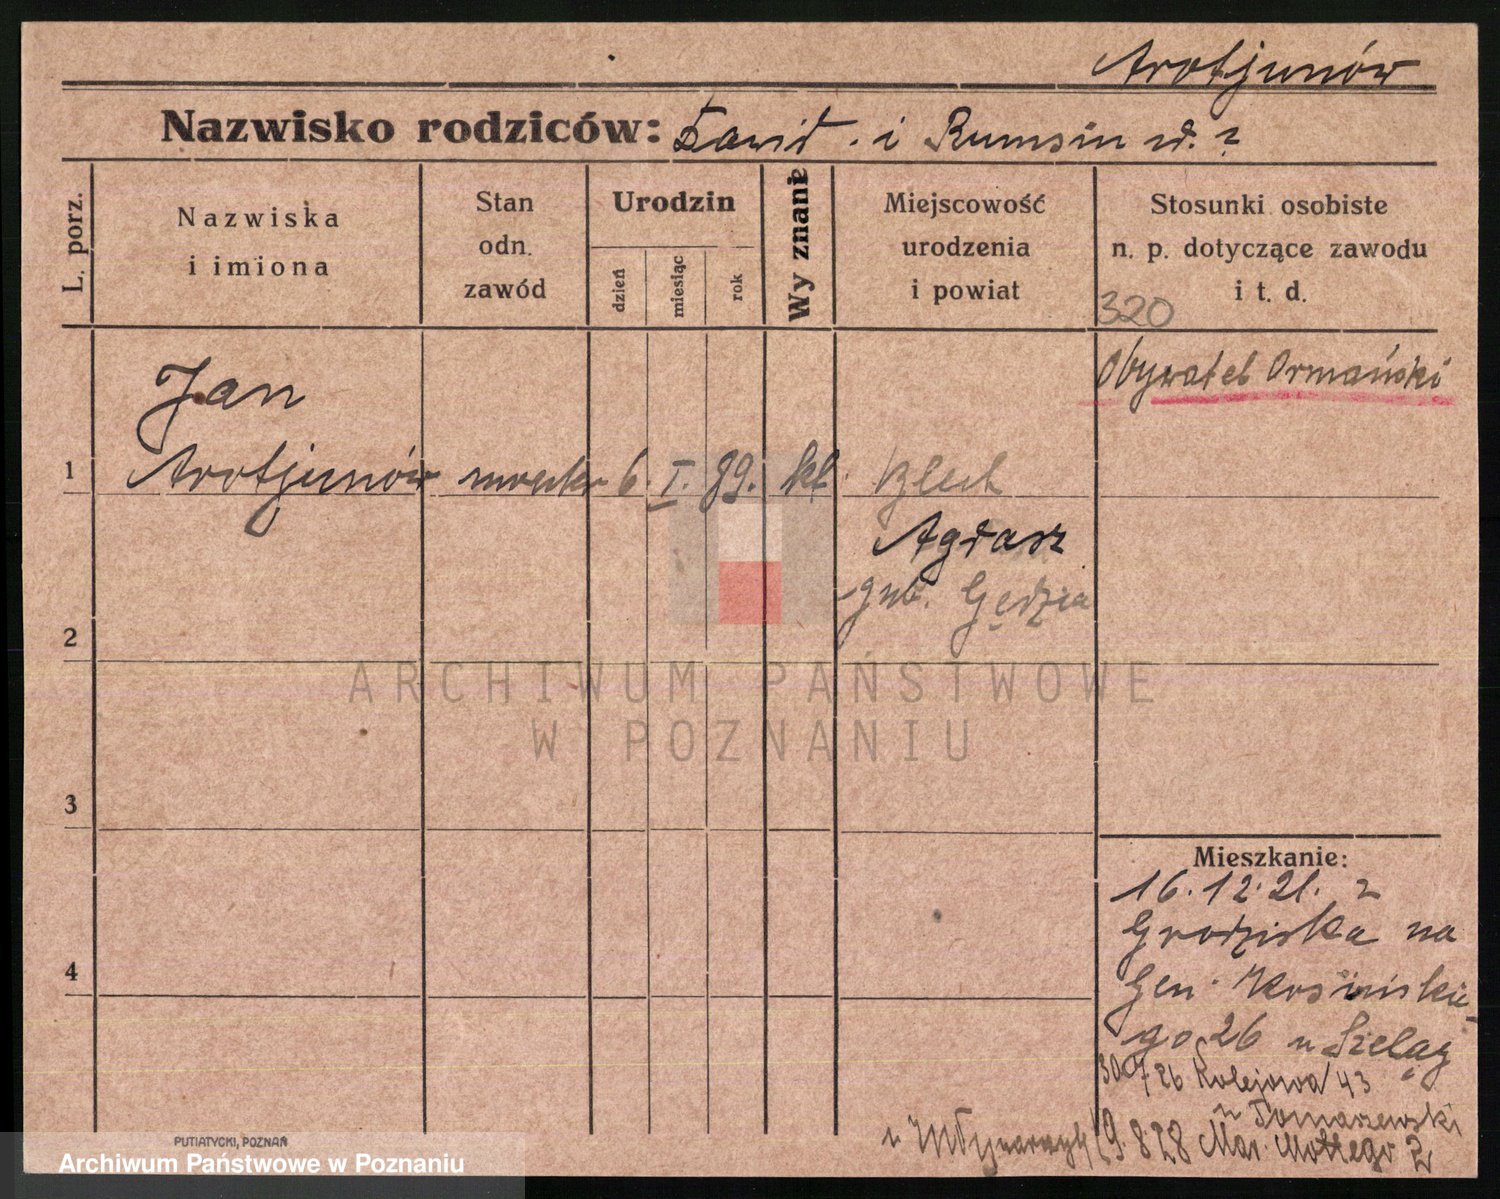 Arotjunów
Nazwisko rodziców: Dawid . i Rumsin d. ?
L. porz.
Nazwiska
i imiona
Stan
odn.
zawód
Urodzin
dzień
miesiąc
rok
Wy znanie
Miejscowość
urodzenia
i powiat
Stosunki osobiste
n. p. dotyczące zawodu
i t. d.
320
Obywatel Ormański
Jan
1 Arotjunów 6. I. 89. kt.
Agdasz
gub.
2
3
4
ARCHIWUM PAŃSTWOWE
W POZNANIU
Mieszkanie:
16.12.21. z
Grodziska na
Gen. Kosińskie-
go 26 u Szeląg
30.7 26 Kolejowa 43
u Tomaszewski
u Młynarczyk 19.8 28 Mar. Mottego 2
PUTIATYCKI, POZNAŃ
Archiwum Państwowe w Poznaniu